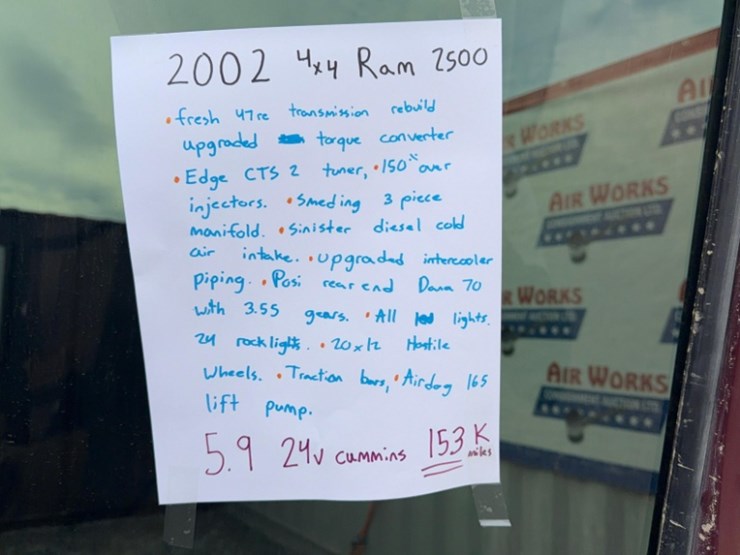 2002 4x4 Ram 2500
• fresh 47re transmission rebuild
upgraded torque converter
• Edge CTS 2 tuner, • 150% over
injectors. • Smeding 3 piece
manifold. • Sinister diesel cold
air intake. • upgraded intercooler
piping. • Posi rear end Dana 70
with 3.55 gears. • All led lights.
24 rock lights. • 20x12 Hostile
Wheels. • Traction bars, • Airdog 165
lift pump.
5.9 24v cummins 153 K
miles
AIR WORKS
AIR WORKS
WORKS
WORKS
AIR